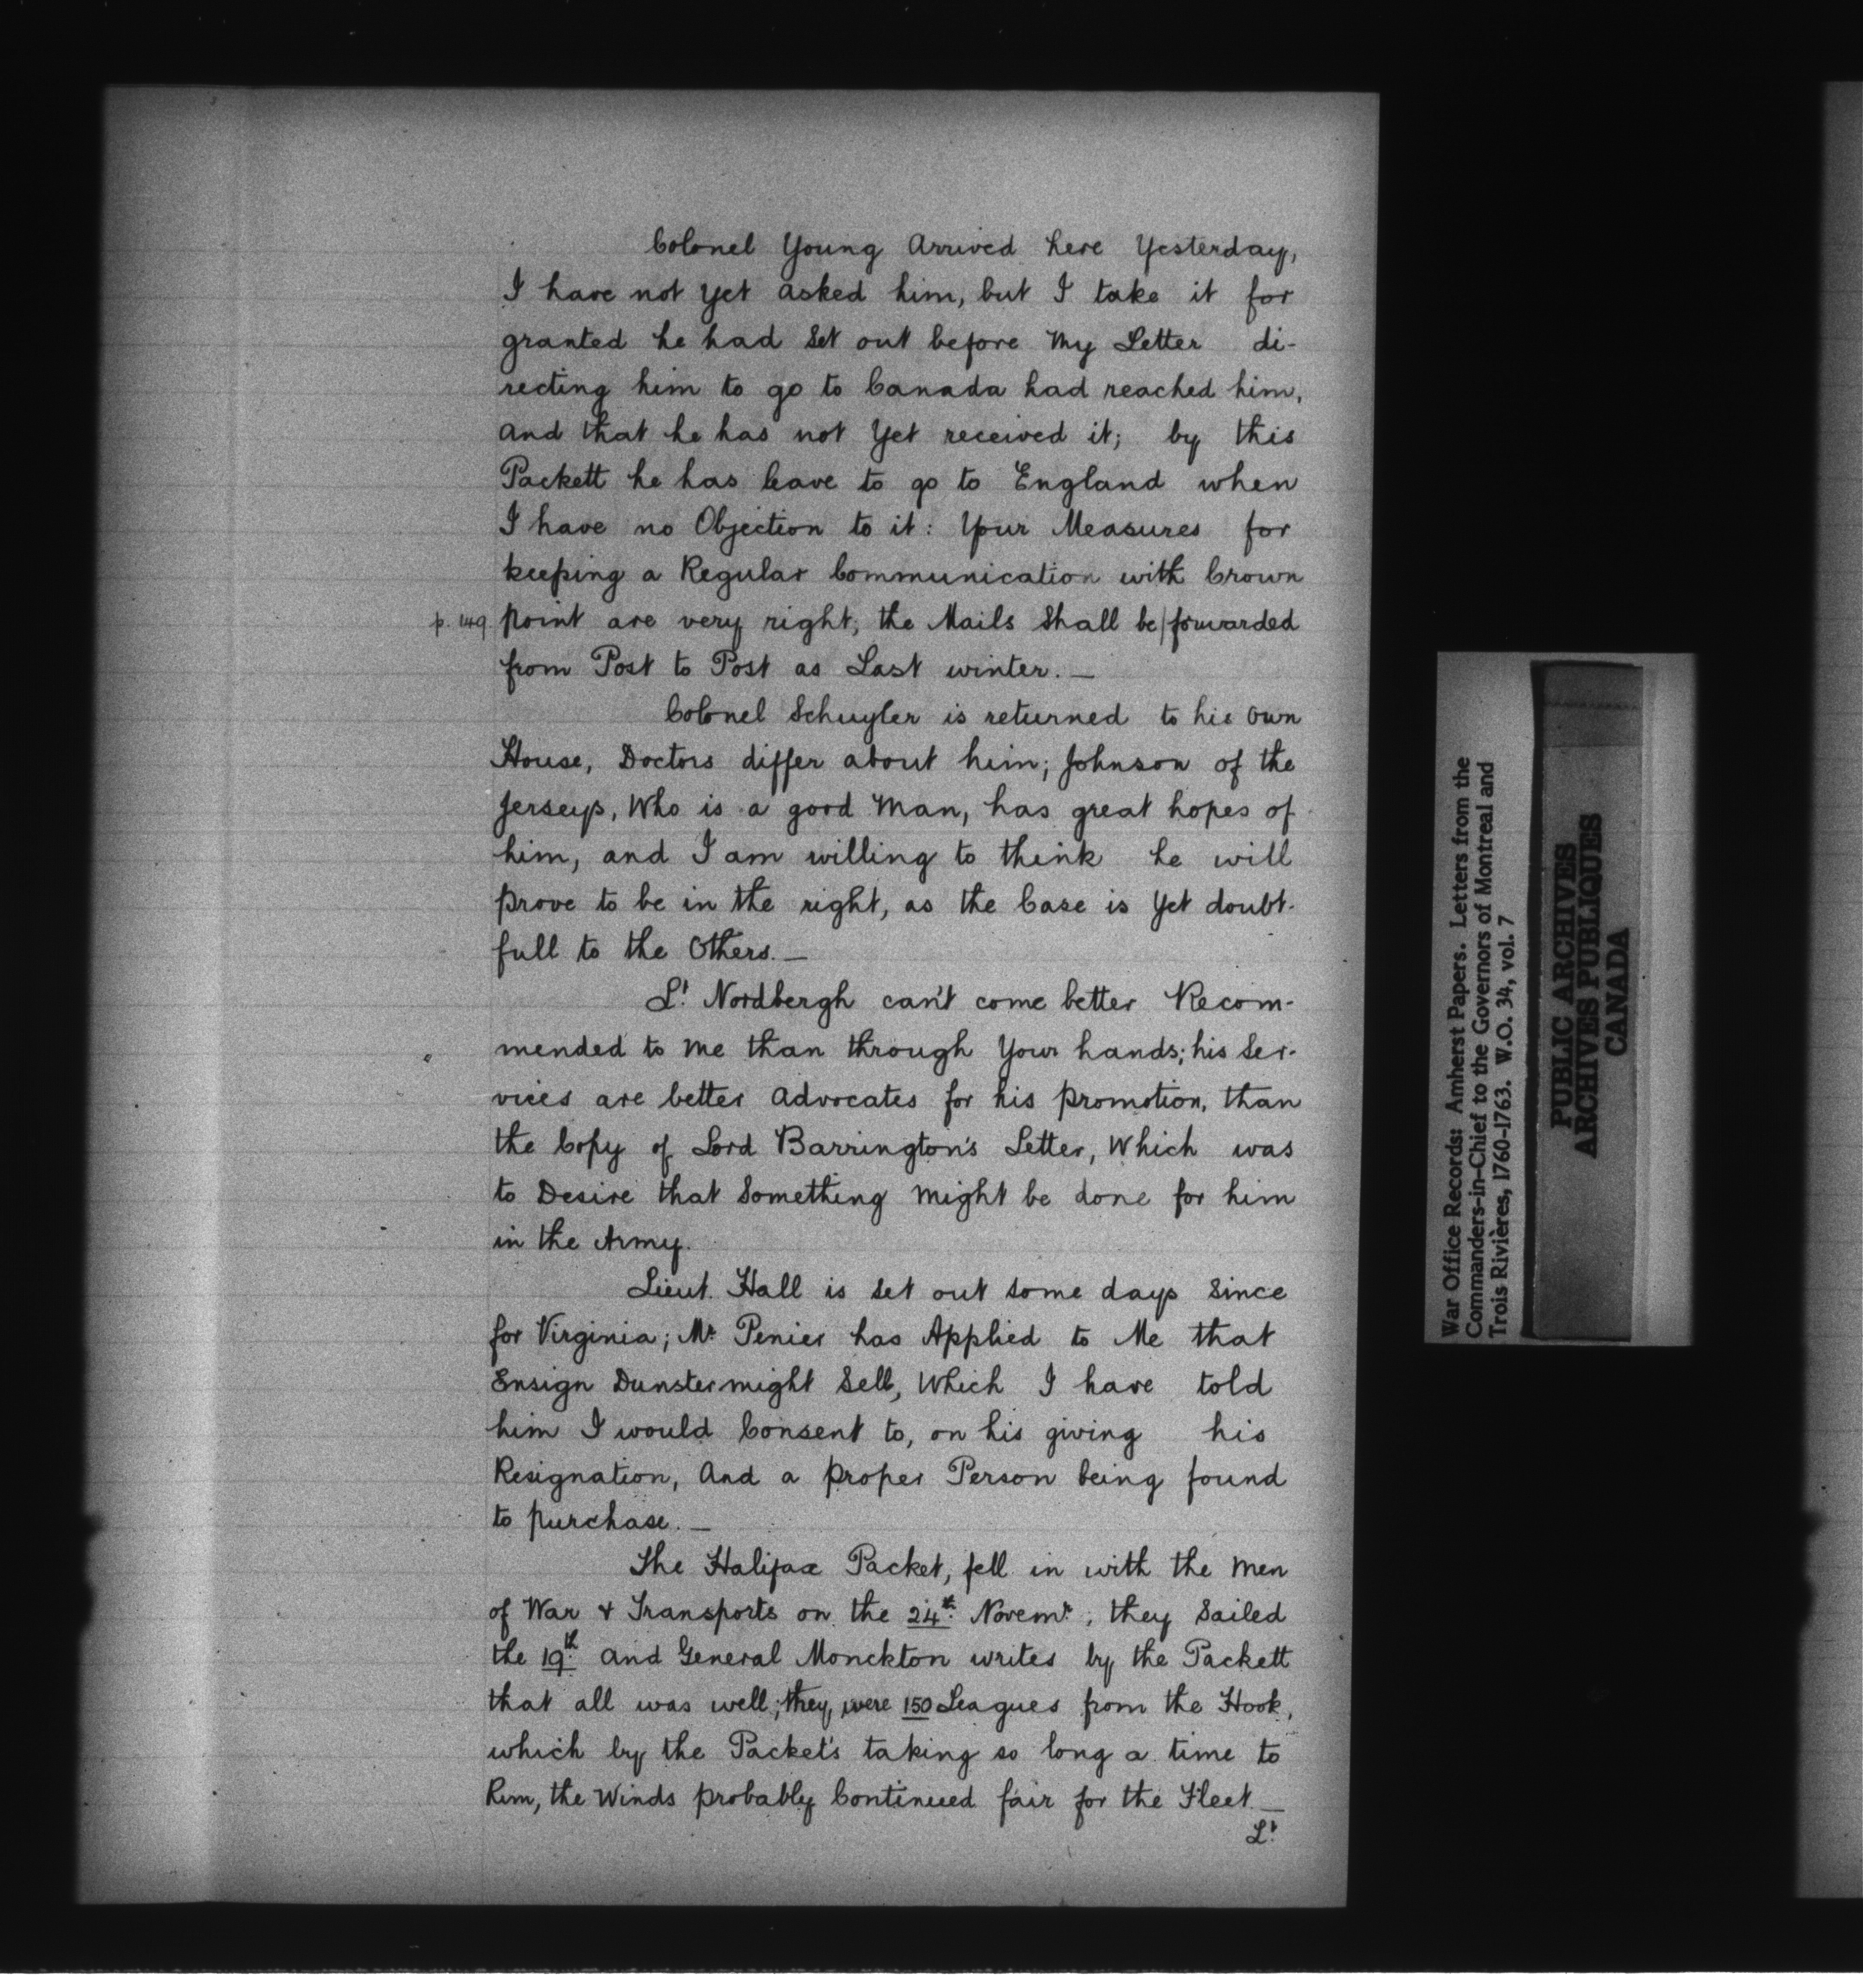 Colonel Young Arrived here Yesterday,
I have not yet asked him, but I take it for
granted he had set out before My Letter di-
recting him to go to Canada had reached him,
And that he has not Yet received it; by this
Packett he has leave to go to England when
I have no Objection to it: Your Measures for
keeping a Regular Communication with Crown
p. 149. point are very right; the Mails Shall be/forwarded
from Post to Post as Last winter. —
Colonel Schuyler is returned to his own
House, Doctors differ about him; Johnson of the
Jerseys, Who is a good Man, has great hopes of
him, and I am willing to think he will
prove to be in the right, as the Case is Yet doubt-
full to the Others. —
Lt. Nordbergh can't come better Recom-
mended to Me than through Your hands; his Ser-
vices are better Advocates for his promotion, than
the Copy of Lord Barrington's Letter, Which was
to Desire that Something Might be done for him
in the Army.
Lieut. Hall is set out some days Since
for Virginia; Mr. Penier has Applied to Me that
Ensign Dunster might Sell, Which I have told
him I would Consent to, on his giving his
Resignation, And a proper Person being found
to purchase. —
The Halifax Packet, fell in with the Men
of War & Transports on the 24th. Novemr., they Sailed
the 19th. And General Monckton writes by the Packett
that all was well; they were 150 Leagues from the Hook,
which by the Packet's taking so long a time to
Run, the Winds probably Continued fair for the Fleet. —
Lt.
War Office Records: Amherst Papers. Letters from the
Commanders-in-Chief to the Governors of Montreal and
Trois Rivières, 1760-1763. W.O. 34, vol. 7
PUBLIC ARCHIVES
ARCHIVES PUBLIQUES
CANADA